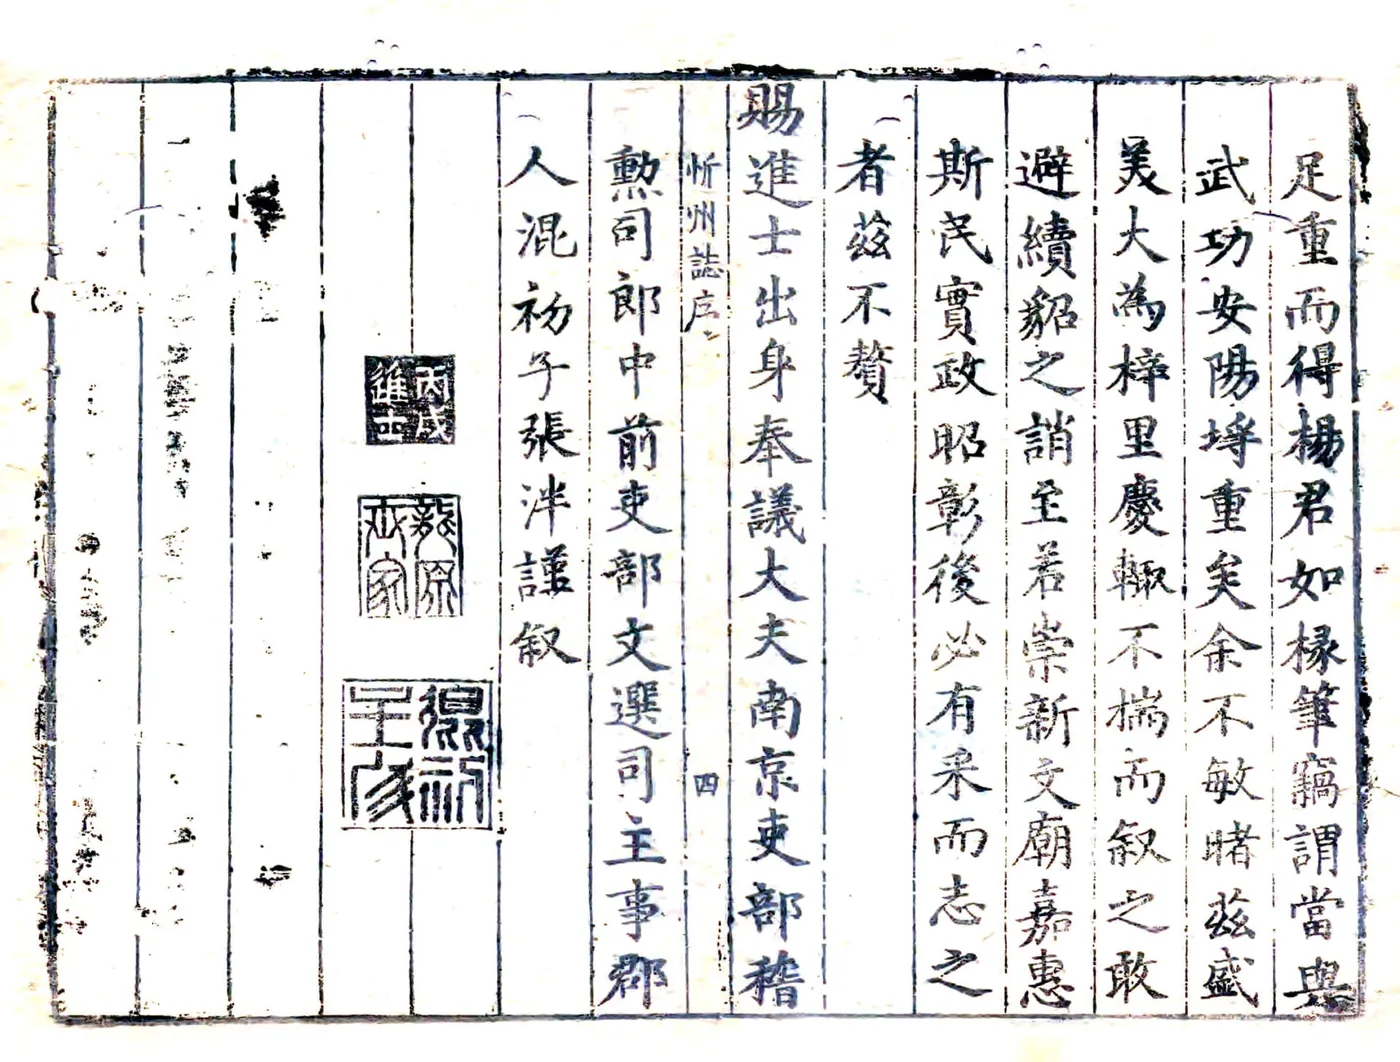 足重而得楊君如椽筆竊謂當與
武功安陽埒重矣余不敏睹茲盛
美大為梓里慶輙不揣而叙之敢
避續貂之誚至若崇新文廟嘉惠
斯民實政昭彰後必有采而志之
者茲不贅
賜進士出身奉議大夫南京吏部稽
忻州誌序
四
勲司郎中前吏部文選司主事郡
人混初子張泮謹叙
丙戌進士
龍原世家
混初子張